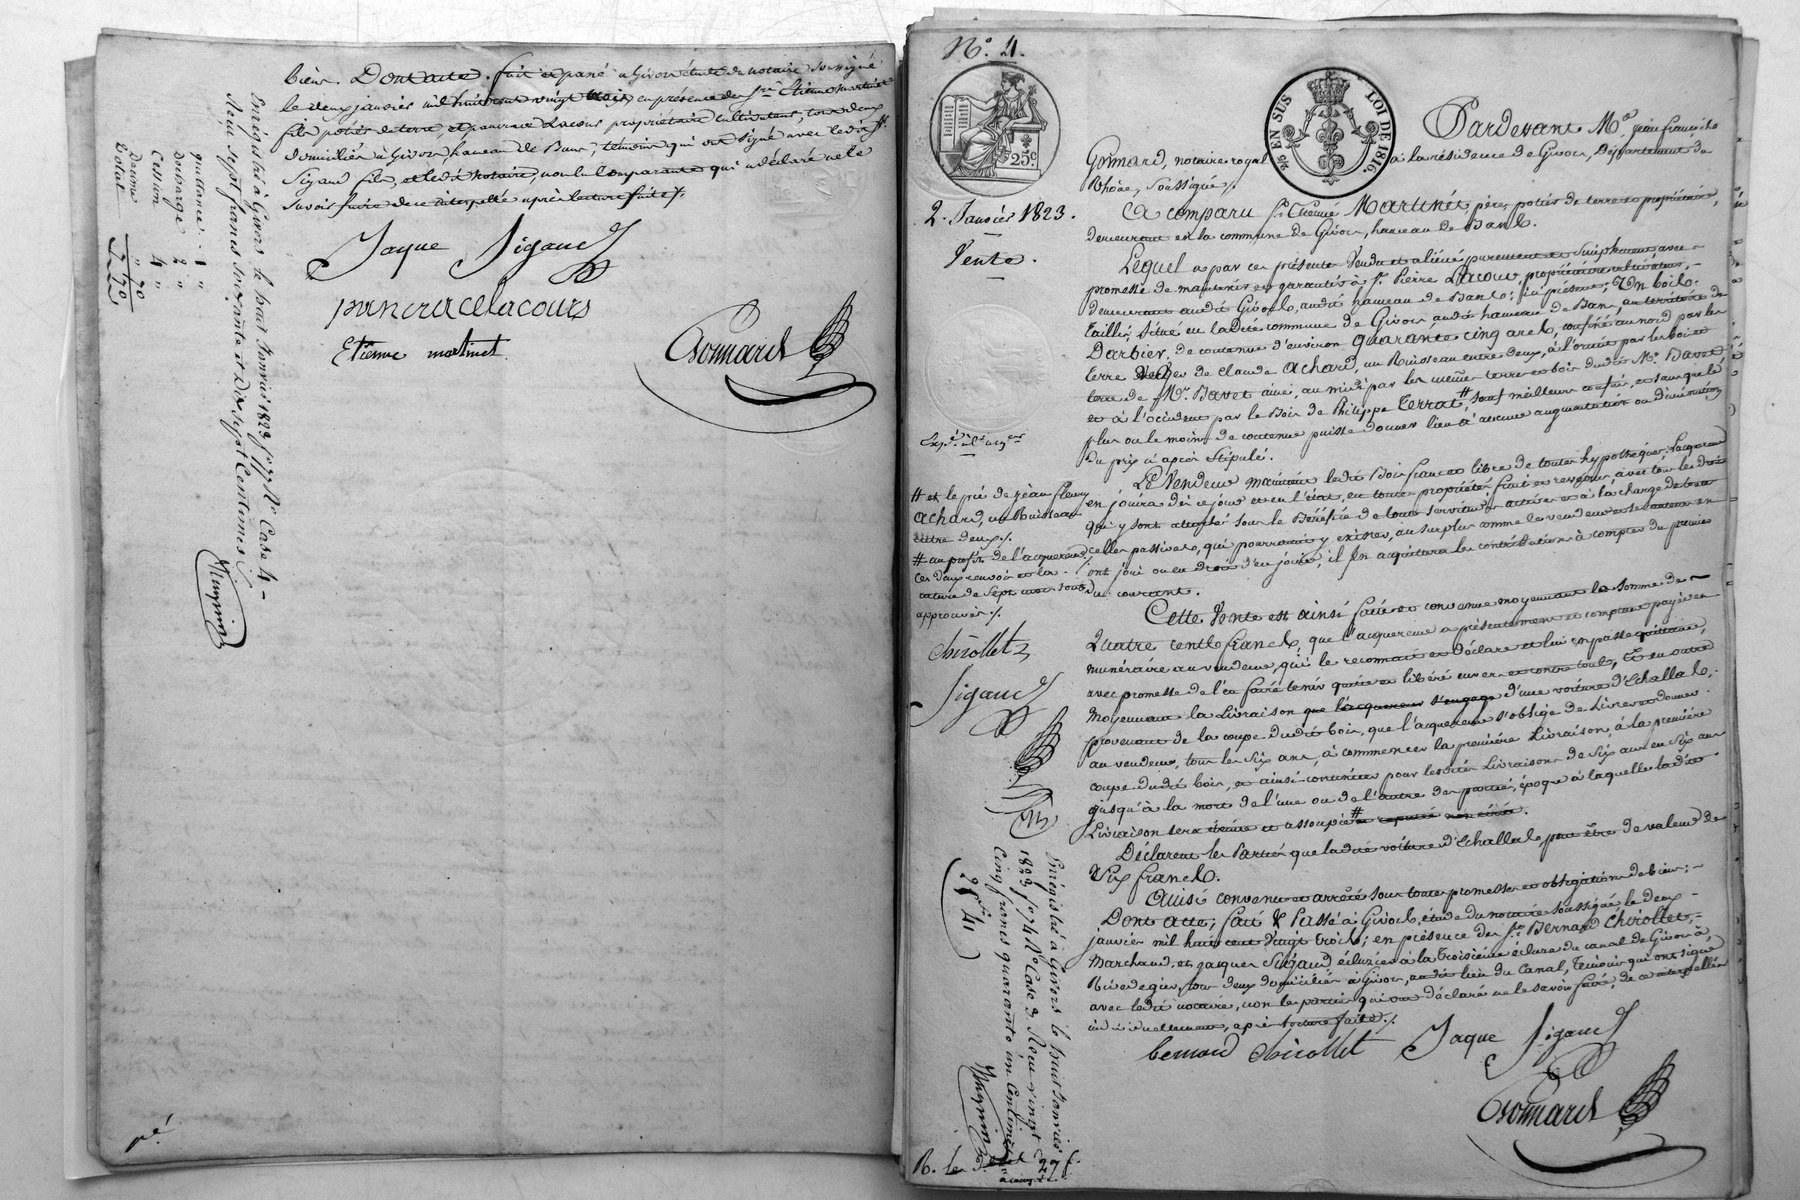 bien. Dont acte. fait et passé à Givors étude du notaire soussigné
le deux janvier mil huit cent vingt trois, en présence de Sr. Etienne Martinet
fils potier de terre, et pancrace Lacour propriétaire cultivateur, tous deux
domiciliés à Givors, hameau de Bans, témoins qui ont signé avec le dit Sr.
Sigaud fils, et le dit notaire, non la Comparante qui a déclaré ne le
savoir faire de ce interpellée après lecture faite ./.
Jaque Sigaud
pancrace lacours
Etienne martinet
Gonnard
Enregistré à Givors le huit Janvier 1823 Case 4
Reçu sept francs soixante et dix sept Centimes
quittance 1 "
décharge 2 "
Cession 4 "
dixme " 70
Total 7 70
N°. 4.
25 c.
25 EN SUS
LOI DE 1816.
Pardevant Me. jean françois
Gonnard, notaire royal à la résidence de Givors, Département du
Rhône, Soussigné ./.
2. Janvier 1823.
Vente.
A comparu Sr. Etienne Martinet, père, potier de terre et propriétaire,
demeurant en la commune de Givors, hameau de Bans.
Lequel a par ces présentes Vendu et aliéné purement et Simplement, avec
promesse de maintenir et garantir à Sr. Pierre Lacour, propriétaire cultivateur,
demeurant audit Givors, audit hameau de Bans; ici présent; Un bois
taillis, Situé en ladite commune de Givors, audit hameau de Ban, au territoire de
Barbier, de contenue d'environ quarante cinq ares, confiné au nord par les
terre de Claude Achard, un Ruisseau entre deux, à l'orient par les bois et
terre de Mr. Bavet ainé, au midi par les mêmes terre et bois dudit Mr. Bavet,
et à l'occident par le Bois de Philippe Terrat #, sauf meilleurs confins, et sans que le
plus ou le moins de contenue puisse donner lieu à aucune augmentation ou diminution
du prix ci après Stipulé.
Le Vendeur maintient ledit Bois franc et libre de toutes hypothèques; l'acquéreur
en jouira dès ce jour et en l'état, en toute propriété, fruits et revenus, avec tous les droits
qui y sont attachés sous le Bénéfice de toutes servitudes actives et à la charge de toutes
celles passives, qui pourraient y exister, au surplus comme le vendeur et ses auteurs en
ont joui ou eu droit d'en jouir; il en acquittera les contributions à compter du premier
du courant.
# et le pré de jean fleury
Achard, un Ruisseau
entre deux ./.
# au profit de l'acquéreur,
ces deux renvois et la
rature de Sept mots sont
approuvés ./.
chirollet
Sigaud
Cette Vente est ainsi faite et convenue moyennant la somme de
Quatre cents francs, que l'acquéreur a présentement et comptant payée en
numéraire au vendeur, qui le reconnait et déclare et lui en passe quittance,
avec promesse de l'en faire tenir quitte et libéré envers et contre tous, Et en outre
Moyennant la Livraison que l'acquéreur s'engage d'une voiture d'Echallats,
provenant de la coupe dudit bois, que l'acquéreur s'oblige de Livrer et donner
au vendeur, tous les Six ans, à commencer la première Livraison, à la première
coupe dudit bois, et ainsi continuer pour lesdites Livraisons de Six ans en Six ans
jusqu'à la mort de l'une ou de l'autre des parties, époque à laquelle ladite
Livraison sera éteinte et assoupie #
Déclarent les Parties que ladite voiture d'Echallats peut être de valeur de
Six francs.
Ainsi convenu et arrêté sous toutes promesses et obligations de biens:
Dont acte; fait & Passé à Givors, étude du notaire soussigné le deux
janvier mil huit cent vingt trois; en présence des Srs. Bernard Chirollet,
Marchand, et jacques Sigaud éclusier à la troisième écluse du canal de Givors à
Rivedegier, tous deux domiciliés à Givors, audit lieu du Canal, Témoins qui ont signé
avec ledit notaire, non les parties qui ont déclaré ne le savoir faire, de ce interpellées
individuellement, après lecture faite ./.
bernard chirollet Jaque Sigaud
Gonnard
Enregistré à Givors le huit Janvier
1823 Case 3 Reçu vingt
Cinq francs quarante un Centimes
25 f 41